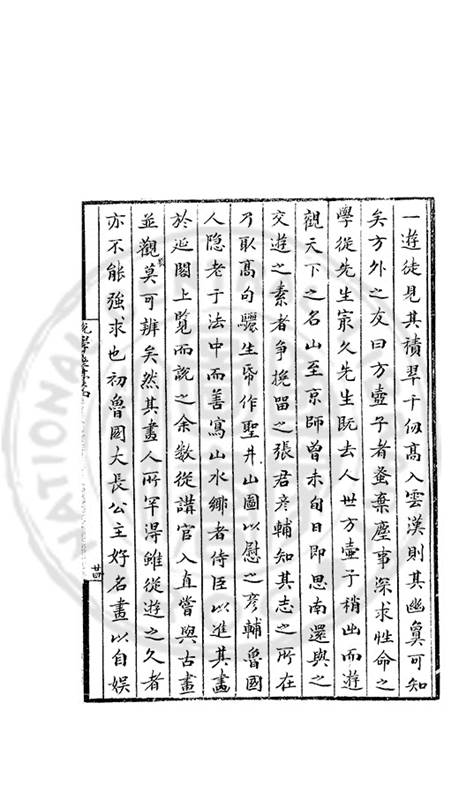 一遊徒見其積翠千仞髙入雲漢則其幽夐可知
矣方外之友曰方壺子者盡棄塵事深求性命之
學從先生㝡久先生既去人世方壺子稍出而遊
觀天下之名山至京師曽未旬日即思南還與之
交遊之素者争挽留之張君彦輔知其志之所在
乃取髙句驪生帋作聖井山圖以慰之彦輔魯國
人隐老于法中而善寫山水鄉者侍臣以進其畫
於延閣上覽而說之余數從講官入直嘗與古畫
並觀莫可辨矣然其畫人所罕得雖從遊之久者
亦不能強求也初魯國大長公主好名畫以自娱
廿四